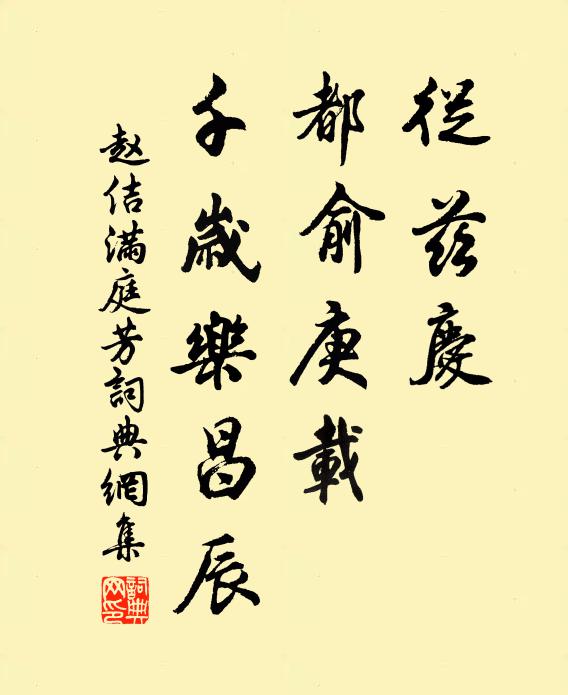 從茲慶
都俞庚載
千歲樂昌辰
赵佶满庭芳詞典網集
詞典網印